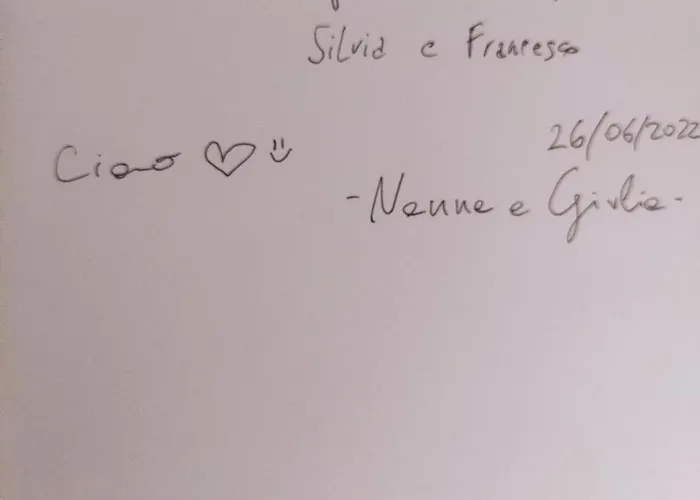 Silvia e Francesco
26/06/2022
Ciao ♡ :)
- Nanna e Giulia -